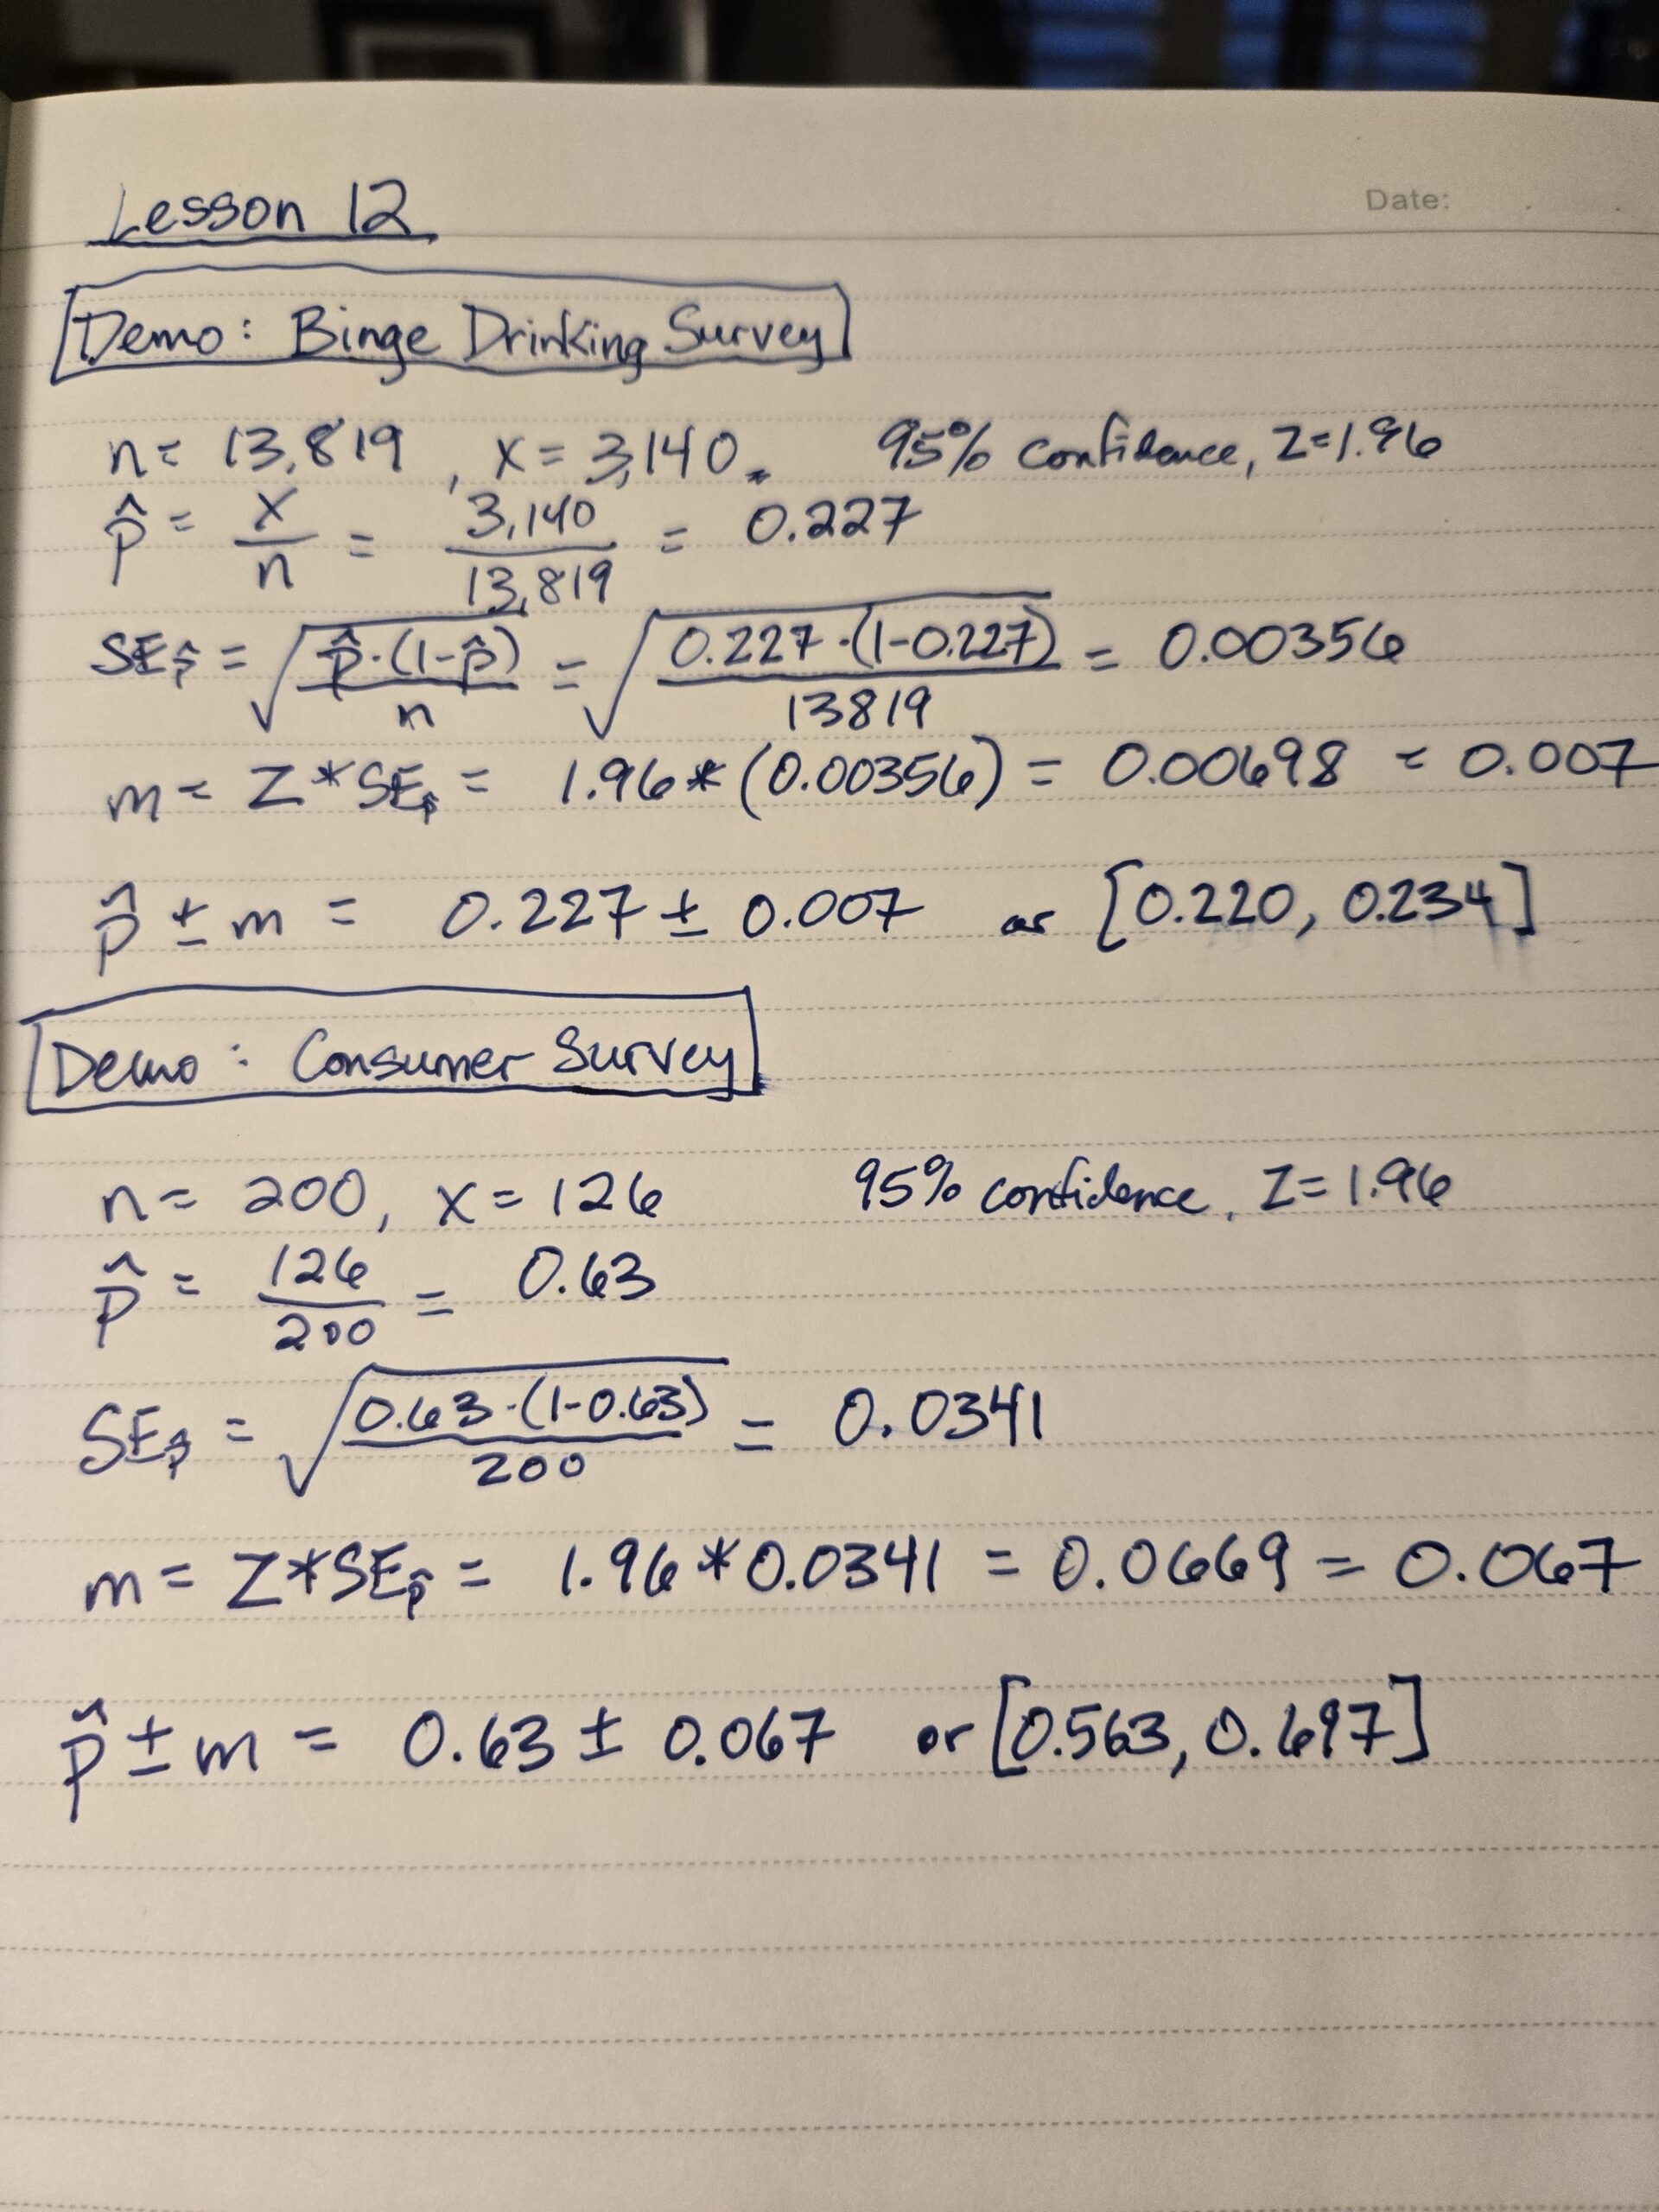 Lesson 12
Date:
Demo: Binge Drinking Survey
n = 13,819, x = 3,140. 95% confidence, Z=1.96
p̂ = x/n = 3,140/13,819 = 0.227
SEp̂ = √(p̂·(1-p̂)/n) = √(0.227·(1-0.227)/13819) = 0.00356
m = Z*SEp̂ = 1.96*(0.00356) = 0.00698 = 0.007
p̂ ± m = 0.227 ± 0.007 or [0.220, 0.234]
Demo: Consumer Survey
n = 200, x = 126 95% confidence, Z=1.96
p̂ = 126/200 = 0.63
SEp̂ = √(0.63·(1-0.63)/200) = 0.0341
m = Z*SEp̂ = 1.96*0.0341 = 0.0669 = 0.067
p̂ ± m = 0.63 ± 0.067 or [0.563, 0.697]